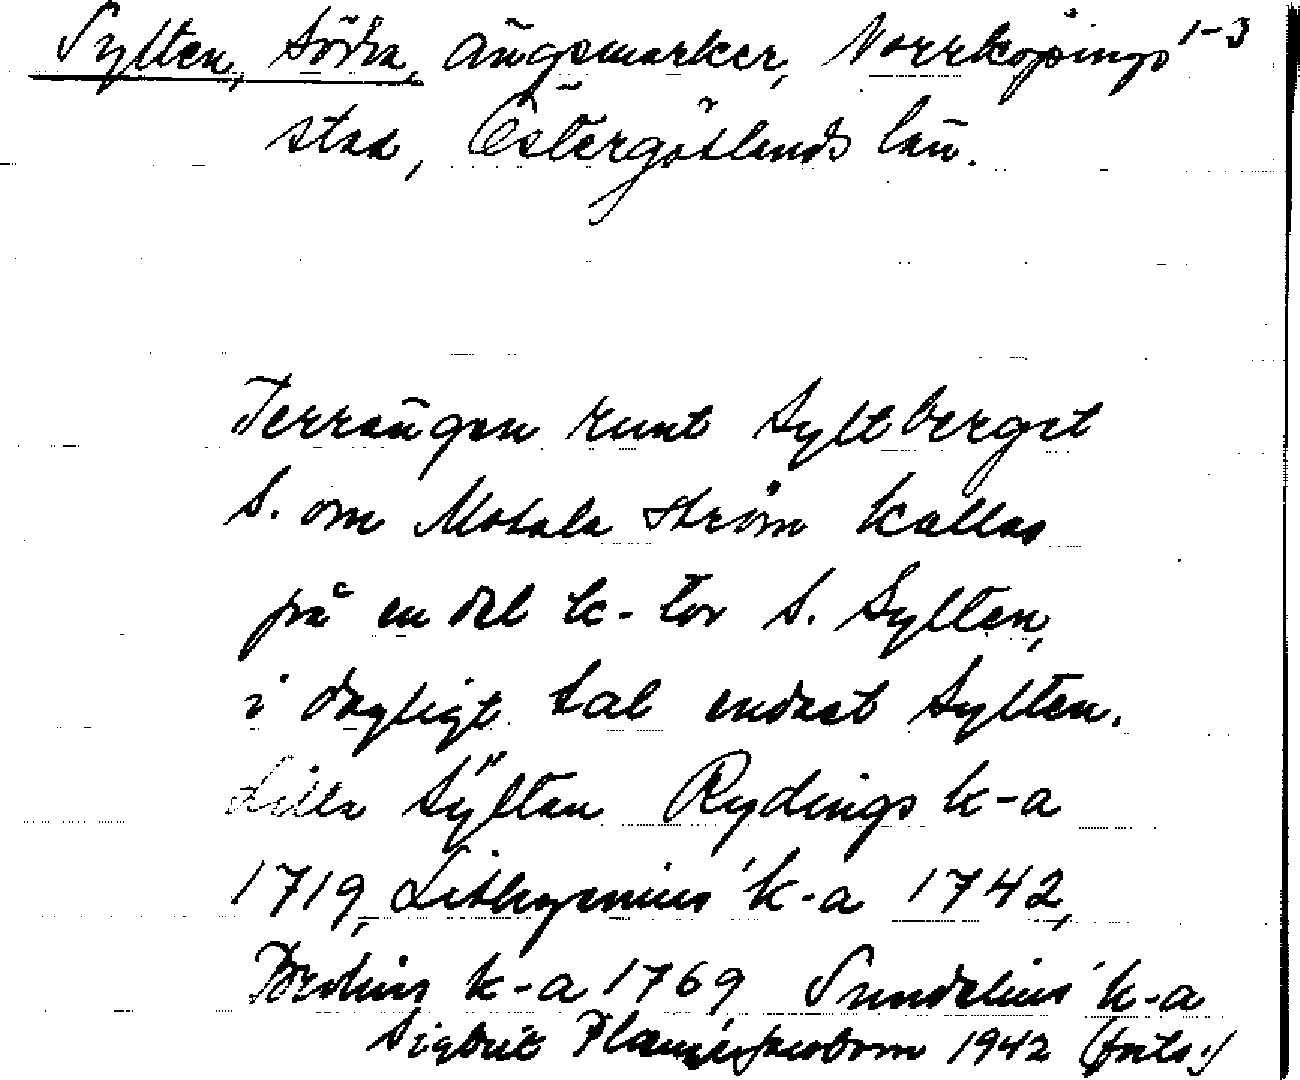 Sylten, Södra, ängsmarker, Norrköpings 1-3
stad, Östergötlands län.
Terrängen runt Syltberget
S. om Motala ström kallas
på en del k-tor S. Sylten,
i dagligt tal endast Sylten.
Lilla Sÿlten Rydings k-a
1719, Lithzenius' k-a 1742,
Brolins k-a 1769, Sundelius' k-a
Sigbrit 1942 (forts.)